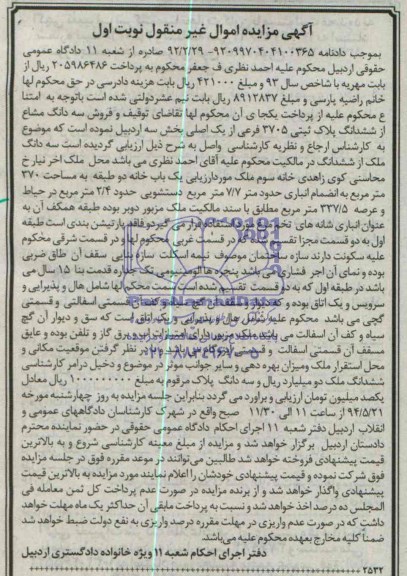 آگهی مزایده اموال غیر منقول نوبت اول
بموجب دادنامه ۹۲۰۹۹۷۰۴۰۴۱۰۰۳۶۵- ۹۲/۲/۲۹ صادره از شعبه ۱۱ دادگاه عمومی
حقوقی اردبیل محکوم علیه احمد نظری ف جعفر محکوم به پرداخت ۲۰۵۹۸۶۴۸۶ ریال از
بابت مهریه با شاخص سال ۹۳ و مبلغ ۴۲۱۰۰۰ ریال بابت هزینه دادرسی در حق محکوم لها
خانم راضیه پارسی و مبلغ ۸۹۱۲۸۳۷ ریال بابت نیم عشردولتی شده است باتوجه به امتنا
ع محکوم علیه از پرداخت یکجا ی آن محکوم لها تقاضای توقیف و فروش سه دانگ مشاع
از ششدانگ پلاک ثبتی ۳۷۰۵ فرعی از یک اصلی بخش سه اردبیل نموده است که موضوع
به کارشناس ارجاع و نظریه کارشناسی واصل به شرح ذیل ارزیابی گردیده است سه دانگ
ملک از ششدانگ در مالکیت محکوم علیه آقای احمد نظری می باشد محل ملک اخر نیار خ
محاسنی کوی زاهدی خانه سوم ملک موردارزیابی یک باب خانه دو طبقه به مساحت ۳۷۰
متر مربع به انضمام انباری حدود متر ۷/۷ متر مربع دستشویی حدود ۲/۴ متر مربع در حیاط
و عرصه ۳۳۷/۵ متر مربع مطابق با سند مالکیت ملک مزبور دوبر بوده طبقه همکف آن به
عنوان انباری شانه های تخم مرغ مورد استفاده قرار می گیردو فاقد پارتیشن بندی است طبقه
اول به دو قسمت مجزا تقسیم شده که در قسمت غربی محکوم لها و در قسمت شرقی محکوم
علیه سکونت دارند سازه ساختمان موصوف نیمه اسکلت سازه بنایی سقف آن طاق ضربی
بوده و نمای آن اجر فشاری می باشد پنجره ها آلومینیومی تک جداره قدمت بنا ۱۵ سال می
باشد در طبقه اول که به دو قسمت تقسیم شده است قسمت محکوم لها شامل هال و پذیرایی و
سرویس و یک اتاق بوده و کف دیوار و سقف آن گچ و قسمتی اسفالتی و قسمتی
گچی می باشد محکوم علیه شامل هال و پذیرایی و یک اتاق است که سق و دیوار آن گچ
سیاه و کف آن اسفالت می باشد ملک مزبور دارای امتیازات آب و برق گاز و تلفن بوده و عایق
سقف آن قسمتی اسفالت و قسمتی می باشد با در نظر گرفتن موقعیت مکانی و
محل استقرار ملک ومیزان بهره دهی و سایر جوانب موثر در موضوع و دخیل درامر کارشناسی
ششدانگ ملک دو میلیارد ریال و سه دانگ پلاک مرقوم به مبلغ ۱۰۰۰۰۰۰۰۰۰ ریال معادل
یکصد میلیون تومان ارزیابی و براورد می گردد بنابراین جلسه مزایده به روز چهارشنبه مورخه
۹۴/۵/۲۱ از ساعت ۱۱ الی ۱۱/۳۰ صبح واقع در شهرک کارشناسان دادگاههای عمومی و
انقلاب اردبیل دفتر شعبه ۱۱ اجرای احکام دادگاه عمومی حقوقی در حضور نماینده محترم
دادستان اردبیل برگزار خواهد شد و مزایده از مبلغ معینه کارشناسی شروع و به بالاترین
قیمت پیشنهادی فروخته خواهد شد طالبین می توانند در موعد مقرره فوق در جلسه مزایده
فوق شرکت نموده و قیمت پیشنهادی خودشان را اعلام نمایند مورد مزایده به بالاترین قیمت
پیشنهادی واگذار خواهد شد و از برنده مزایده در صورت عدم پرداخت کل ثمن معامله فی
المجلس ده درصد اخذ خواهد شد و نسبت به پرداخت مابقی آن حداکثر یک ماه مهلت خواهد
داشت که در صورت عدم واریزی در مهلت مقرره درصد واریزی به نفع دولت ضبط خواهد شد
ضمنا کلیه مخارج بعهده محکوم علیه می باشد.
دفتر اجرای احکام شعبه ۱۱ ویژه خانواده دادگستری اردبیل
۲۵۳۲